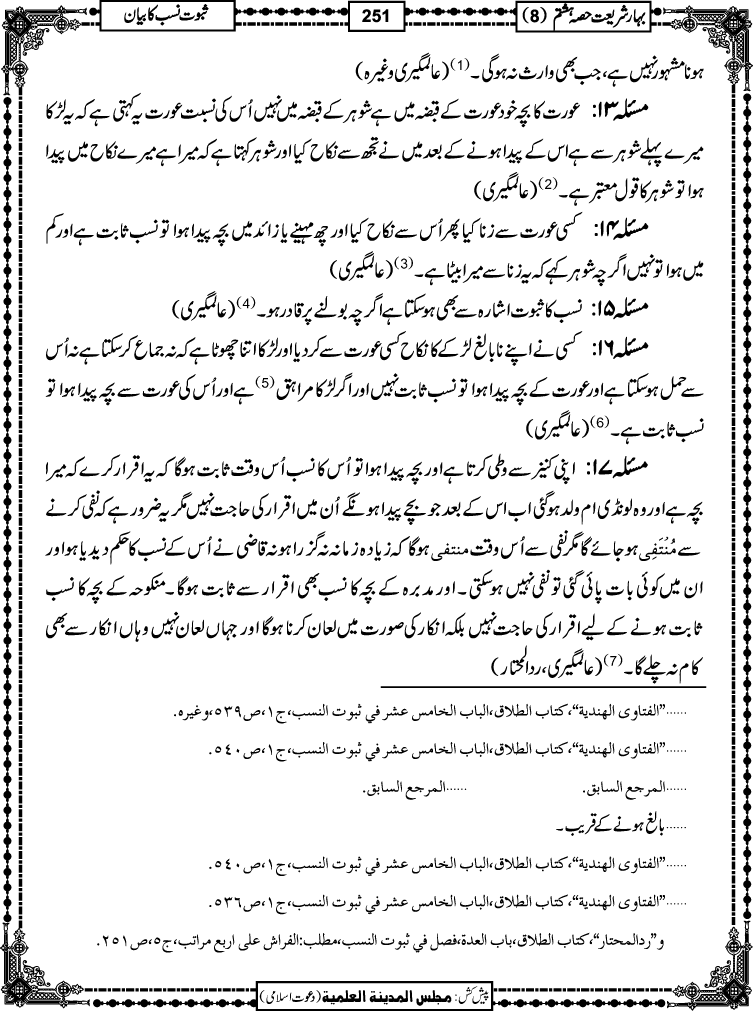 بہار شریعت حصہ ہشتم (8)
251
ثبوت نسب کا بیان
ہونا مشہور نہیں ہے، جب بھی وارث نہ ہوگی۔(1) (عالمگیری وغیرہ)
مسئلہ ۱۳: عورت کا بچہ خود عورت کے قبضہ میں ہے شوہر کے قبضہ میں نہیں اُس کی نسبت عورت یہ کہتی ہے کہ یہ لڑکا
میرے پہلے شوہر سے ہے اس کے پیدا ہونے کے بعد میں نے تجھ سے نکاح کیا اور شوہر کہتا ہے کہ میرا ہے میرے نکاح میں پیدا
ہوا تو شوہر کا قول معتبر ہے۔(2) (عالمگیری)
مسئلہ ۱۴: کسی عورت سے زنا کیا پھر اُس سے نکاح کیا اور چھ مہینے یا زائد میں بچہ پیدا ہوا تو نسب ثابت ہے اور کم
میں ہوا تو نہیں اگرچہ شوہر کہے کہ یہ زنا سے میرا بیٹا ہے۔(3) (عالمگیری)
مسئلہ ۱۵: نسب کا ثبوت اشارہ سے بھی ہوسکتا ہے اگرچہ بولنے پر قادر ہو۔(4) (عالمگیری)
مسئلہ ۱۶: کسی نے اپنے نابالغ لڑکے کا نکاح کسی عورت سے کردیا اور لڑکا اتنا چھوٹا ہے کہ نہ جماع کرسکتا ہے نہ اُس
سے حمل ہوسکتا ہے اور عورت کے بچہ پیدا ہوا تو نسب ثابت نہیں اور اگر لڑکا مراہق(5) ہے اور اُس کی عورت سے بچہ پیدا ہوا تو
نسب ثابت ہے۔(6) (عالمگیری)
مسئلہ ۱۷: اپنی کنیز سے وطی کرتا ہے اور بچہ پیدا ہوا تو اُس کا نسب اُس وقت ثابت ہوگا کہ یہ اقرار کرے کہ میرا
بچہ ہے اور وہ لونڈی ام ولد ہوگئی اب اس کے بعد جو بچے پیدا ہونگے اُن میں اقرار کی حاجت نہیں مگر یہ ضرور ہے کہ نفی کرنے
سے مُنْتَفِی ہو جائے گا مگر نفی سے اُس وقت منتفی ہوگا کہ زیادہ زمانہ نہ گزرا ہو نہ قاضی نے اُس کے نسب کا حکم دیدیا ہو اور
ان میں کوئی بات پائی گئی تو نفی نہیں ہوسکتی۔ اور مدبرہ کے بچہ کا نسب بھی اقرار سے ثابت ہوگا۔ منکوحہ کے بچہ کا نسب
ثابت ہونے کے لیے اقرار کی حاجت نہیں بلکہ انکار کی صورت میں لعان کرنا ہوگا اور جہاں لعان نہیں وہاں انکار سے بھی
کام نہ چلے گا۔(7) (عالمگیری، ردالمحتار)
......”الفتاوى الهندية“، كتاب الطلاق، الباب الخامس عشر في ثبوت النسب، ج۱، ص۵۳۹، وغیرہ.
......”الفتاوى الهندية“، كتاب الطلاق، الباب الخامس عشر في ثبوت النسب، ج۱، ص۵٤۰.
......المرجع السابق. ......المرجع السابق.
......بالغ ہونے کے قریب۔
......”الفتاوى الهندية“، كتاب الطلاق، الباب الخامس عشر في ثبوت النسب، ج۱، ص۵٤۰.
......”الفتاوى الهندية“، كتاب الطلاق، الباب الخامس عشر في ثبوت النسب، ج۱، ص۵۳٦.
و”ردالمحتار“، كتاب الطلاق، باب العدة، فصل في ثبوت النسب، مطلب: الفراش على اربع مراتب، ج۵، ص۲۵۱.
پیش کش: مجلس المدینۃ العلمیۃ (دعوت اسلامی)